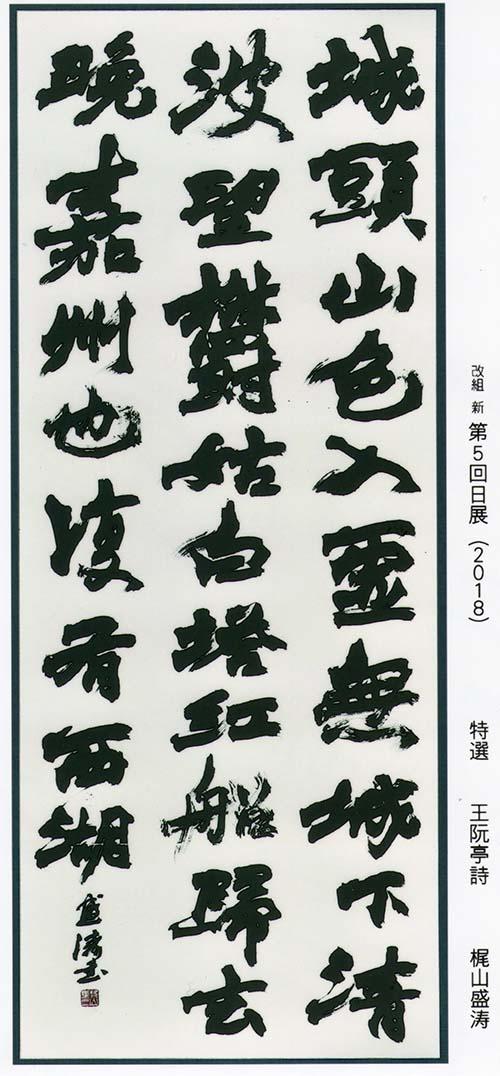 改組 新 第5回日展(2018) 特選 王阮亭詩 梶山盛涛
城頭山色入虚無城下清
波望欝姑白塔紅船歸去
晩嘉州也復有西湖
盛涛書